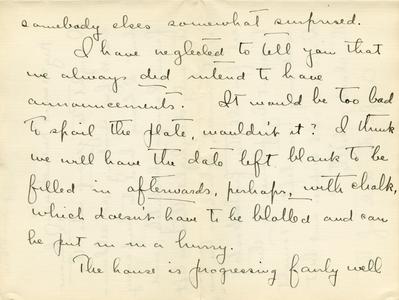 somebody elses somewhat surprised.
I have neglected to tell you that
we always did intend to have
announcements. It would be too bad
to spoil the plate, wouldn't it? I think
we will have the date left blank to be
filled in afterwards, perhaps, with chalk,
which doesn't have to be blotted and can
be put in in a hurry.
The house is progressing fairly well